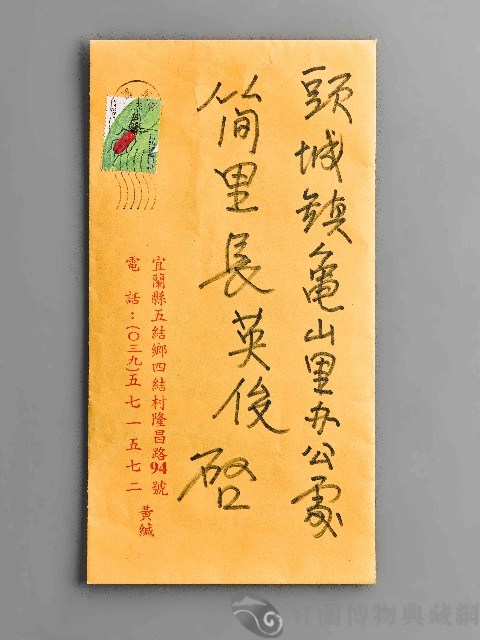 頭城鎮龜山里办公處
简里長英俊 啓
宜蘭縣五結鄉四結村隆昌路94號
電話：(〇三九)五七一五七二 黃緘
宜蘭博物典藏網